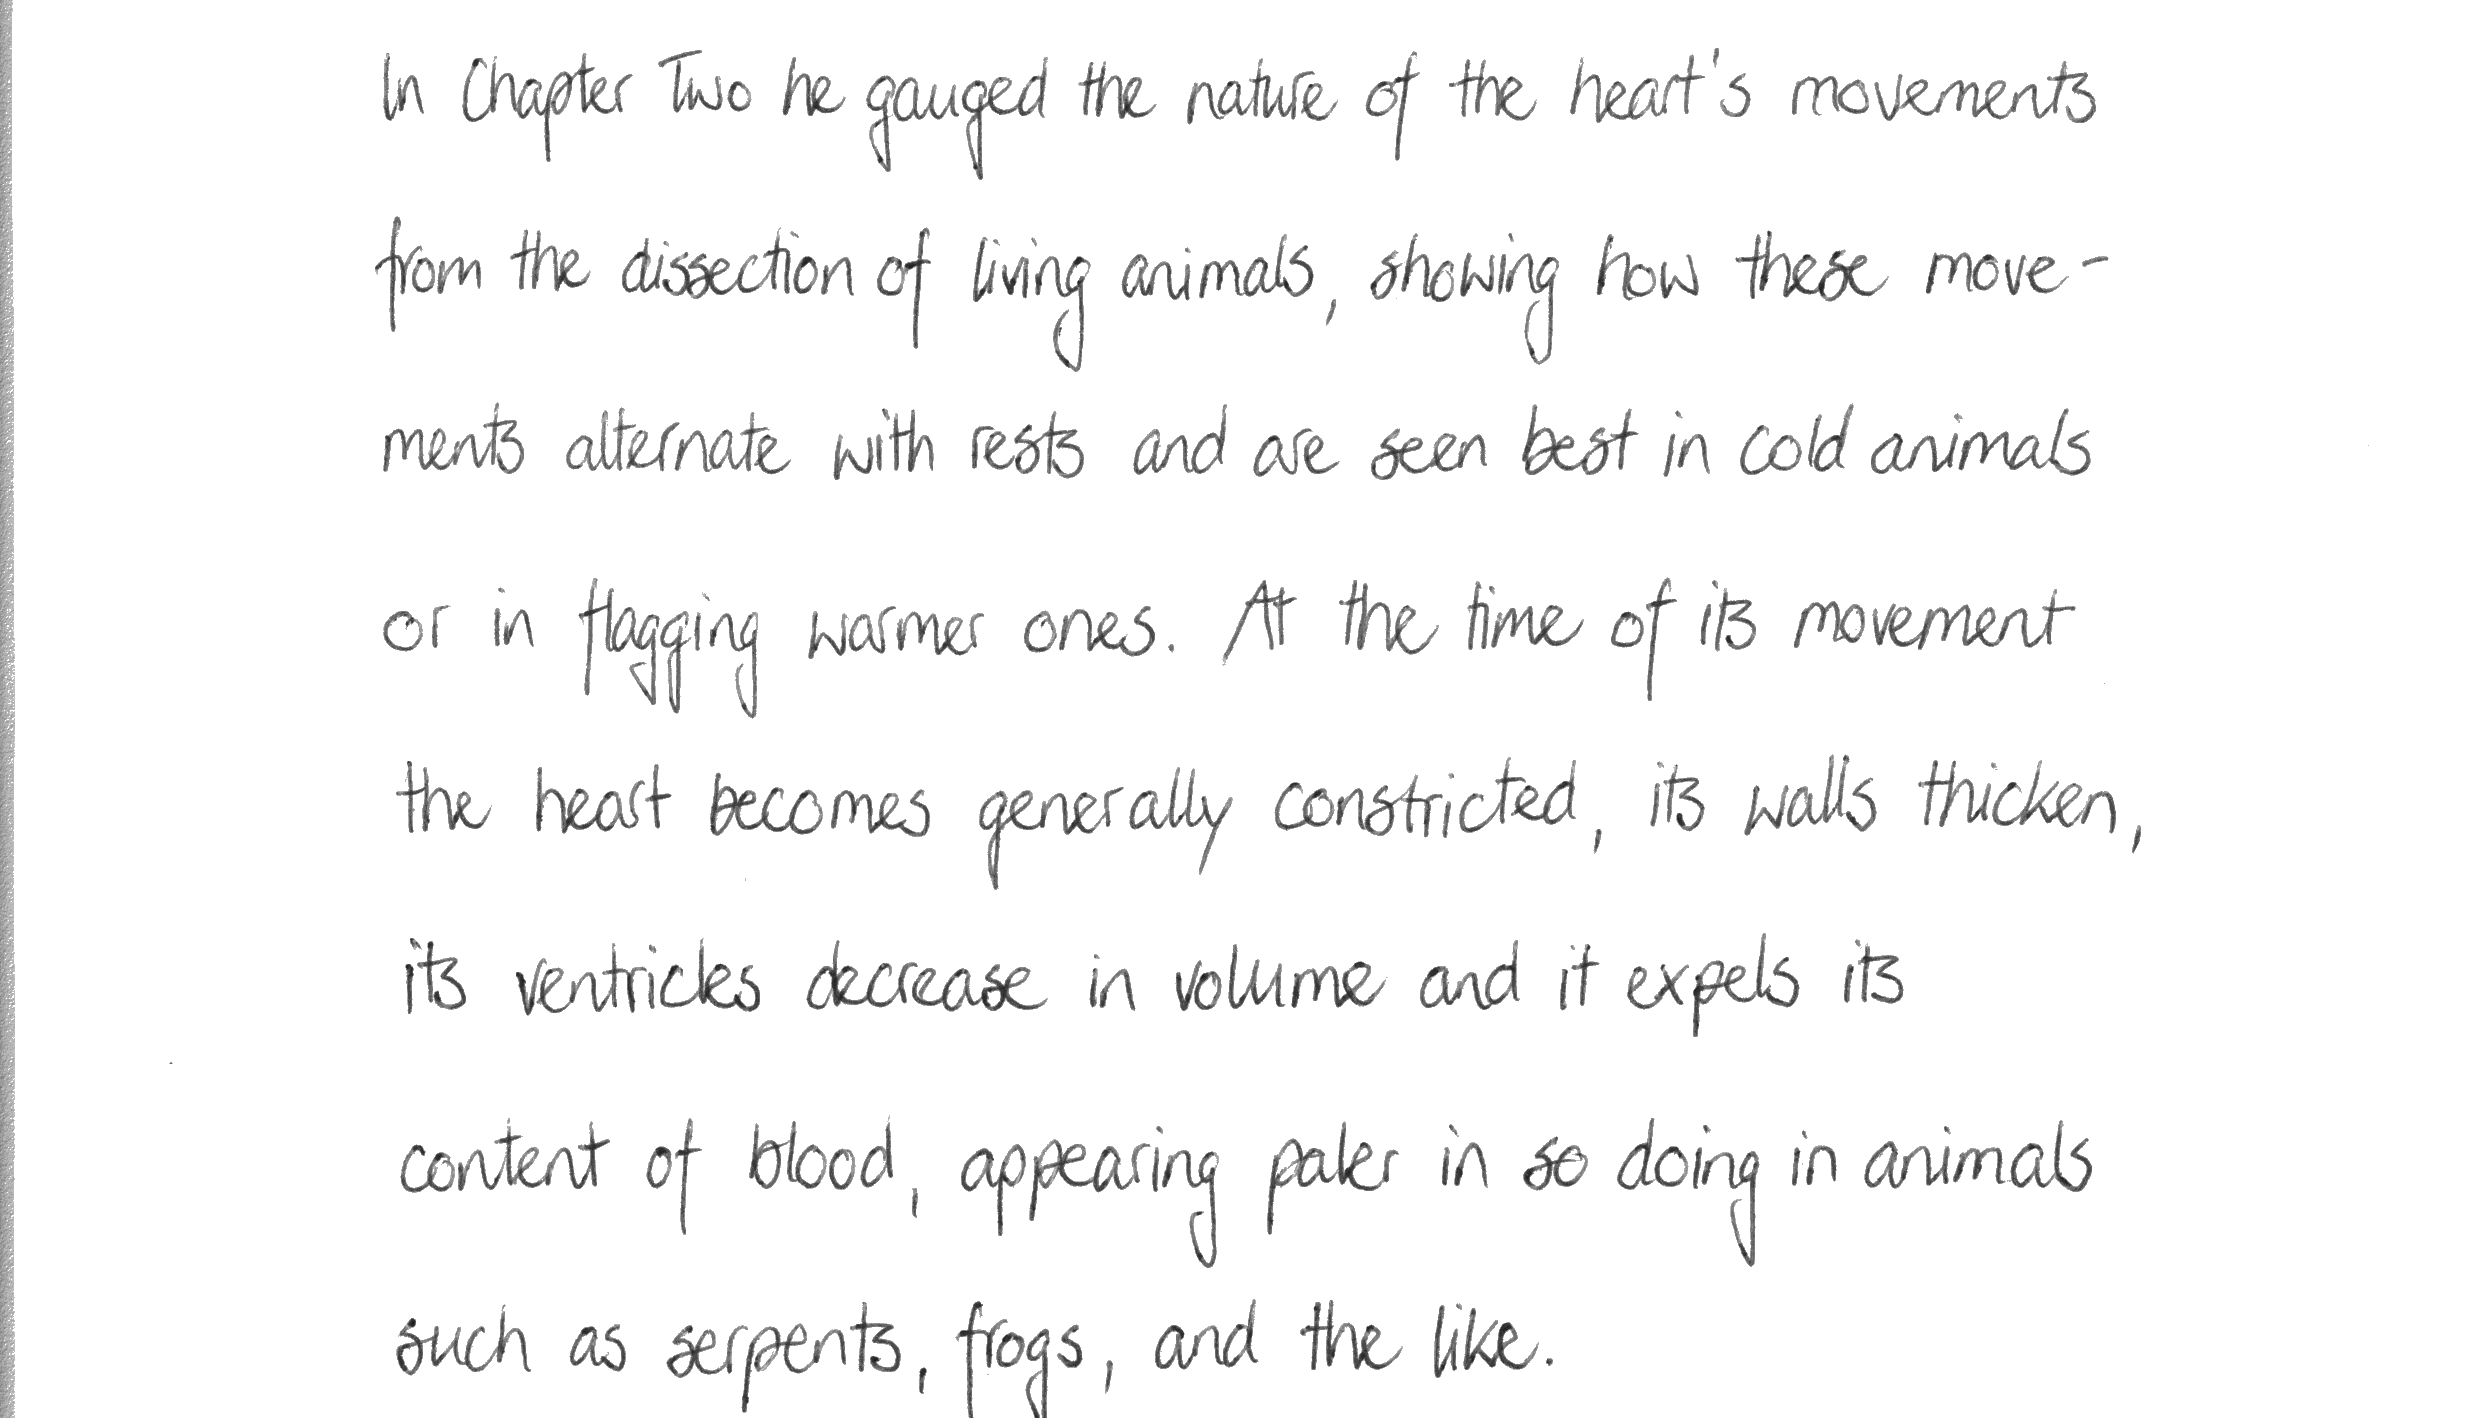 In Chapter Two he gauged the nature of the heart's movements
from the dissection of living animals, showing how these move-
ments alternate with rests and are seen best in cold animals
or in flagging warmer ones. At the time of its movement
the heart becomes generally constricted, its walls thicken,
its ventricles decrease in volume and it expels its
content of blood, appearing paler in so doing in animals
such as serpents, frogs, and the like.